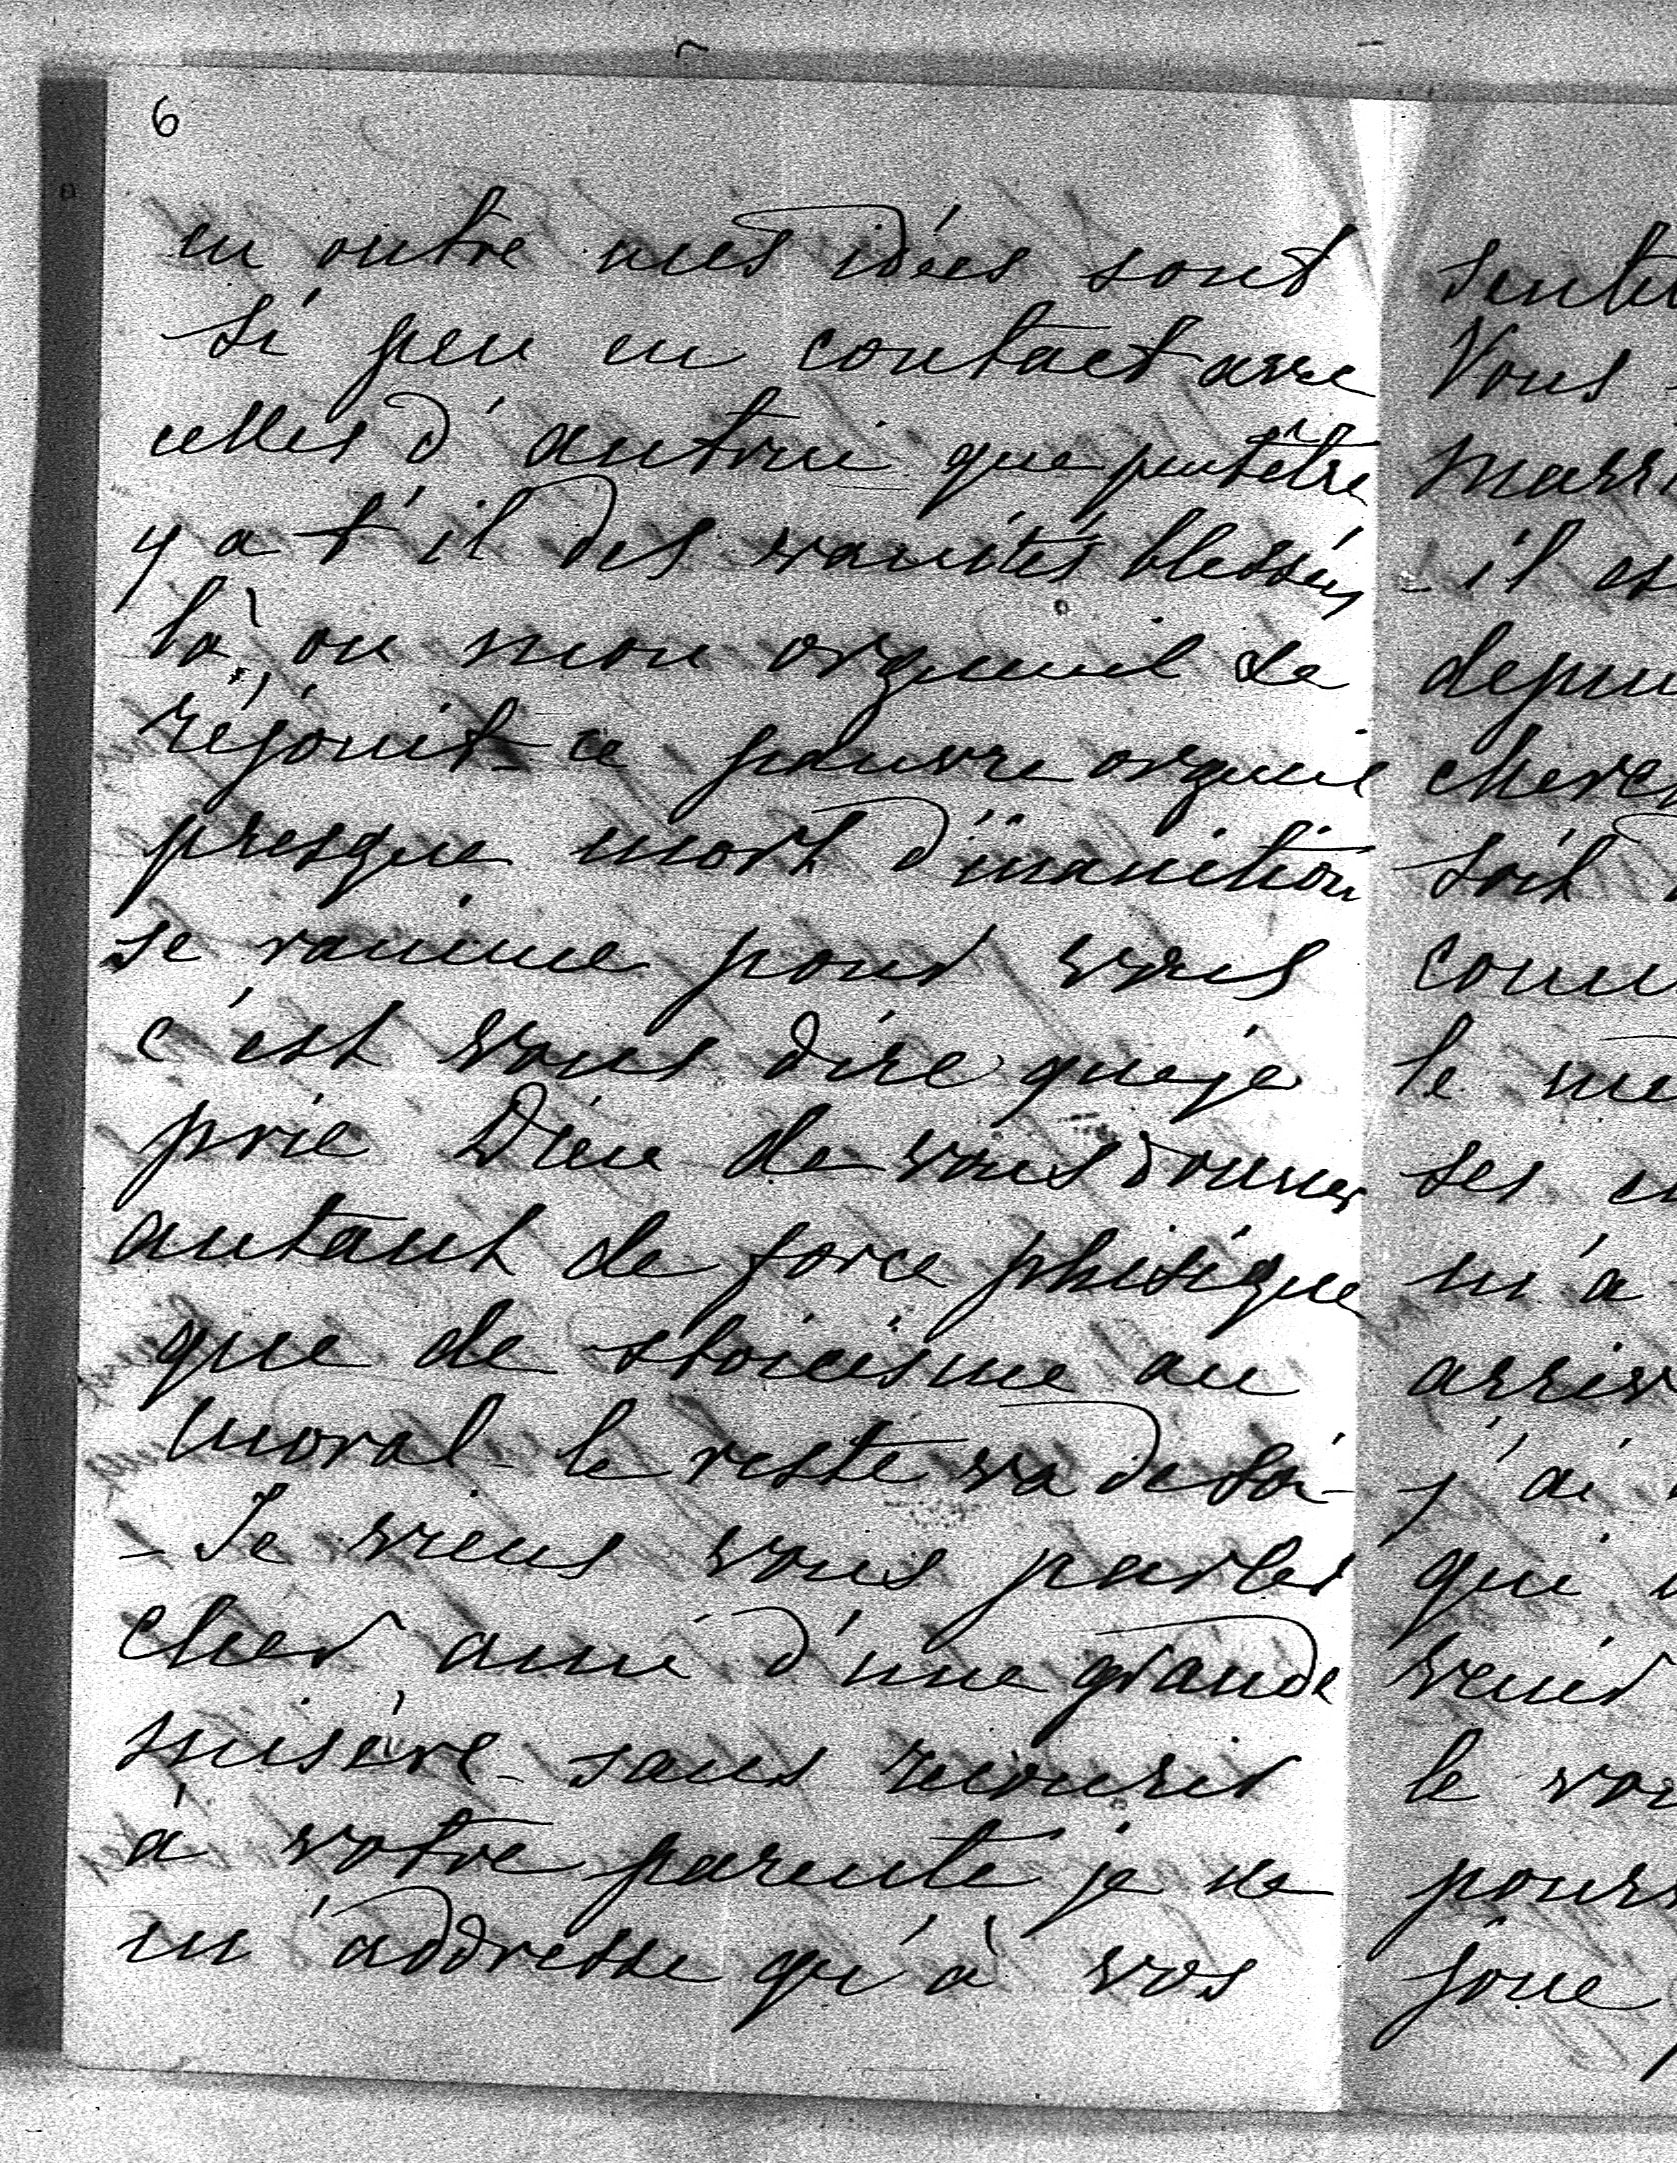 6
en outre mes idées sont
si peu en contact avec
celles d'autrui que peutêtre
y a t'il des vanités blessées
là, ou mon orgueuil se
réjouit - ce pauvre orgueil
presque mort d'inanition
se ranime pour vous
c'est vous dire que je
prie Dieu de vous donner
autant de force phisique
que de stoicisme au
moral - le reste va de soi -
- Je viens vous parler
cher ami d'une grande
misère - sans recourir
à votre parenté je ne
m'addresse qu'à vos
Vous
- il es
soit
le me
ses
m'a
j'ai
qui
venir
le
joue